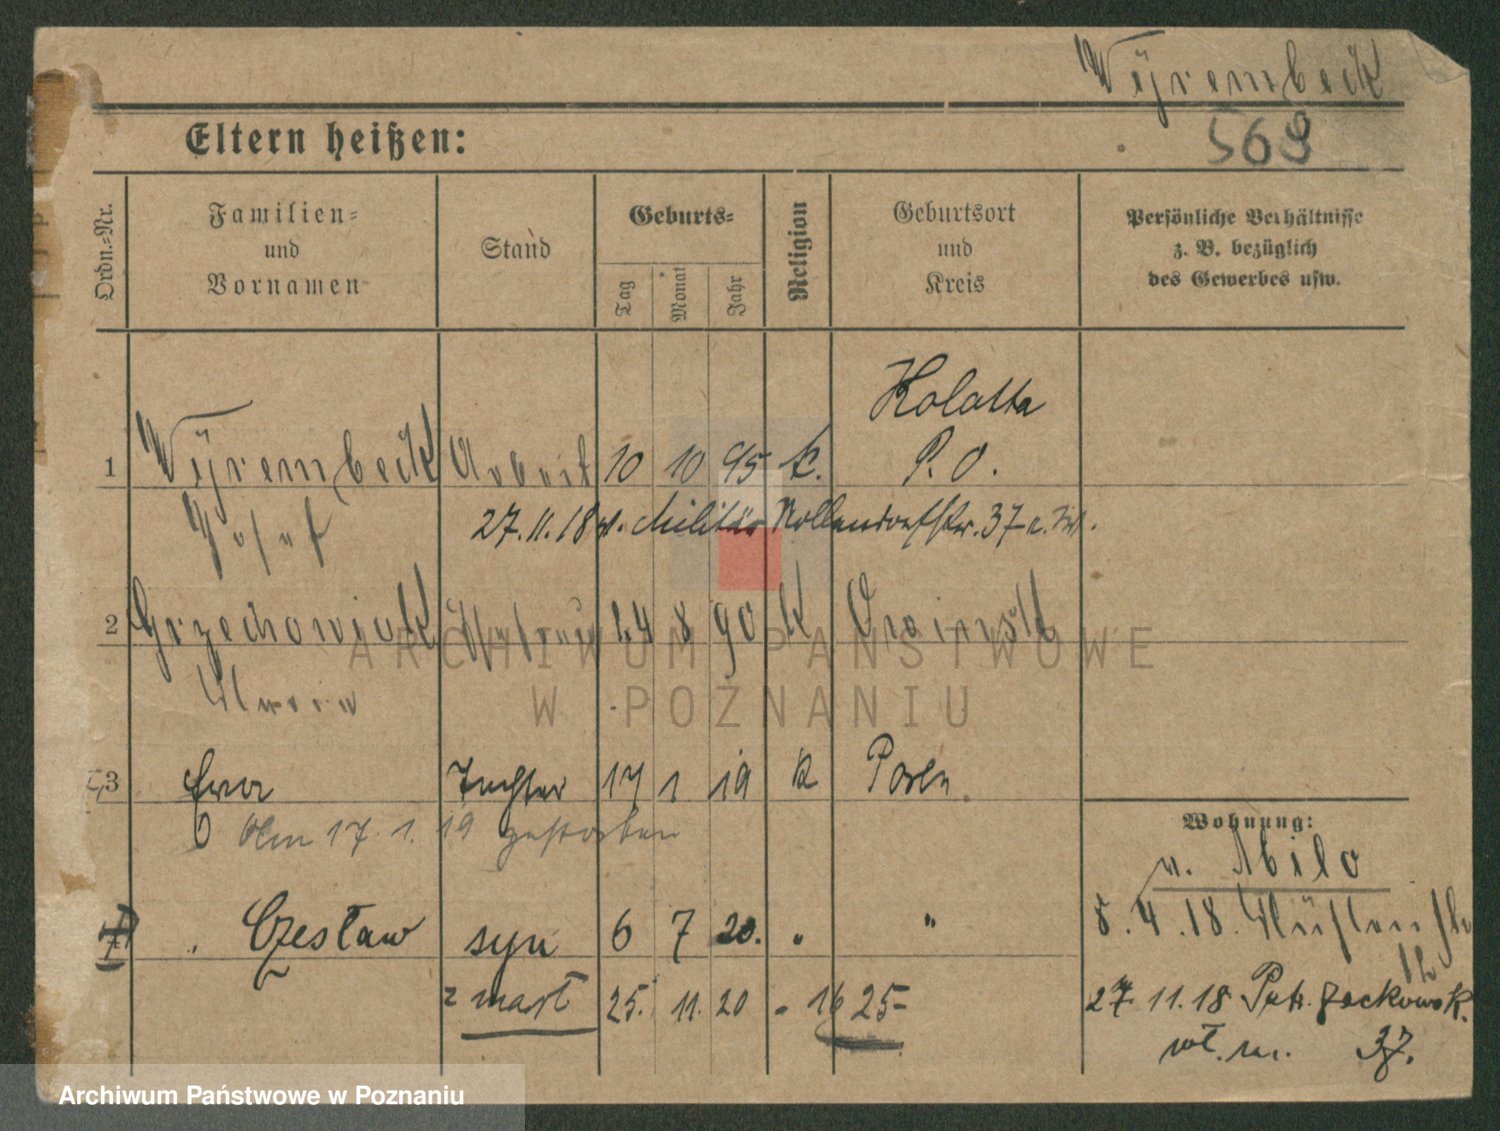 Wyrembeck
568
Eltern heißen:
Ordn.=Nr.
Familien= und Vornamen
Stand
Geburts=
Tag
Monat
Jahr
Religion
Geburtsort und Kreis
Persönliche Verhältnisse z. B. bezüglich des Gewerbes usw.
Kolatta
1 Wyrembeck Arbeit 10 10 95 k. P. O.
Josef 27.11.18 v. Militär Kollendorfstr. 37
2 Grzechowiak 24 8 90 K
Maria
3 Ewa Tochter 17 1 19 k Posen
Am 17. 1. 19 gestorben
Wohnung:
v. Abilo
4 Czesław syn 6 7 20. " "
8.4.18.
12
zmarł 25. 11. 20 " 16 25
27.11.18 Ptr.
37.
ARCHIWUM PAŃSTWOWE
W POZNANIU
Archiwum Państwowe w Poznaniu